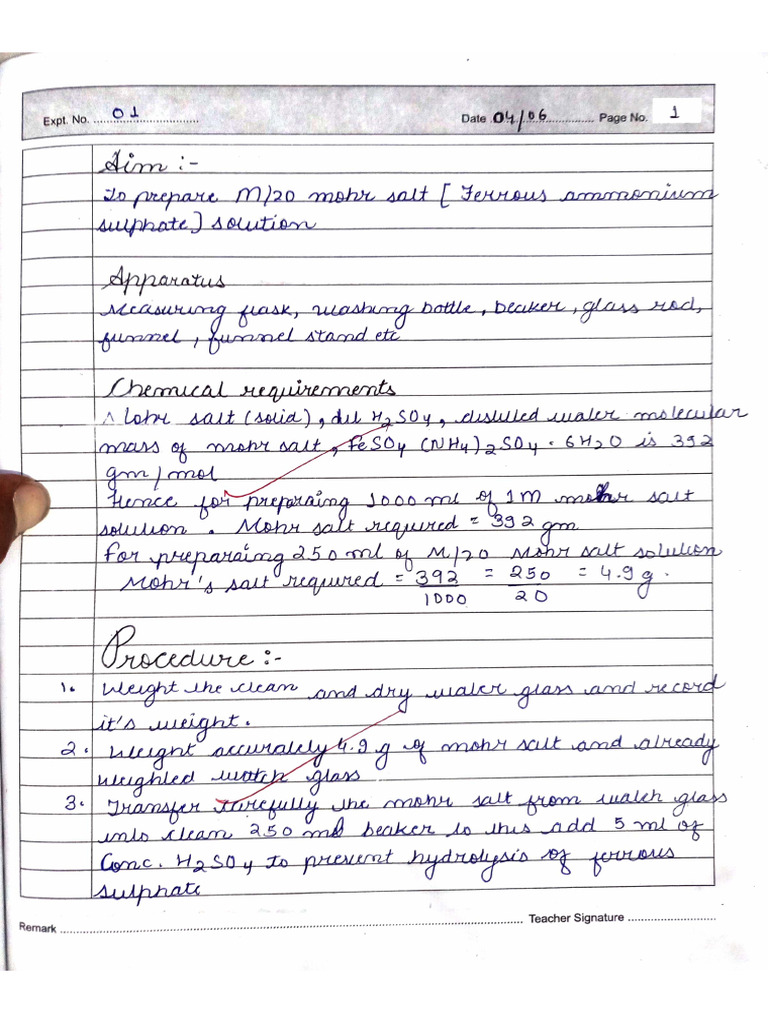 Expt. No. 01 Date 04/06 Page No. 1
Aim :-
To prepare M/20 mohr salt [Ferrous ammonium
sulphate] solution
Apparatus
Measuring flask, washing bottle, beaker, glass rod,
funnel, funnel stand etc
Chemical requirements
Mohr salt (solid), dil H2SO4, distilled water molecular
mass of mohr salt, FeSO4 (NH4)2SO4 · 6H2O is 392
gm/mol
Hence for preparaing 1000 ml of 1M mohr salt
solution. Mohr salt required = 392 gm
for preparaing 250 ml of M/20 Mohr salt solution
Mohr's salt required = 392/1000 = 250/20 = 4.9 g.
Procedure :-
1. Weight the clean and dry water glass and record
it's weight.
2. Weight accurately 4.9 g of mohr salt and already
weighled watch glass
3. Transfer carefully the mohr salt from watch glass
into clean 250 ml beaker to this add 5 ml of
Conc. H2SO4 to prevent hydrolysis of ferrous
sulphate
Remark Teacher Signature